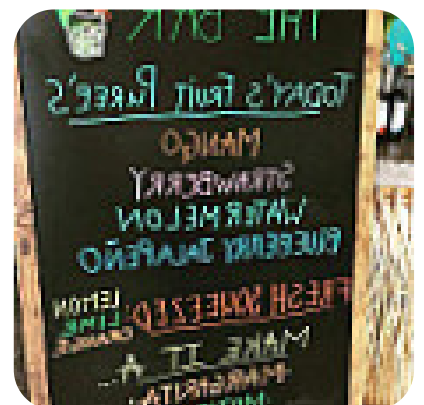 THE BAR
TODAY'S FRUIT PUREE'S
MANGO
STRAWBERRY
WATERMELON
BLUEBERRY JALAPEÑO
FRESH SQUEEZED: LEMON
LIME
ORANGE
MAKE IT A...
MARGARITA